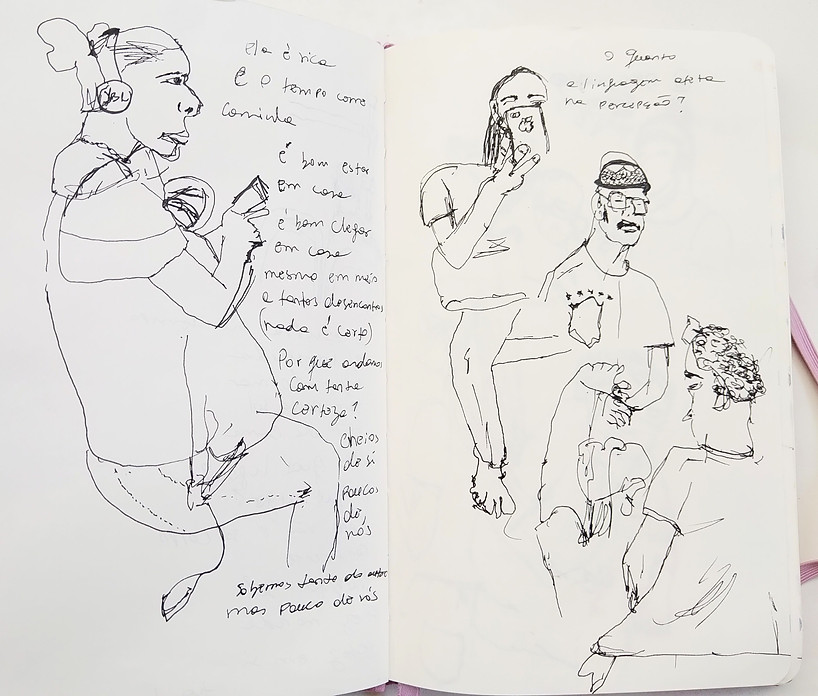 ela é rica
E o tempo corre
caminha
é bom estar
em casa
é bom chegar
em casa
mesmo em meio
a tantos desencontros
(nada é certo)
Por que andamos
com tanta
certeza?
cheios
de si
poucos
de
nós
sabemos tanto do outro
mas pouco de nós
JBL
o quanto
a linguagem afeta
na percepção?